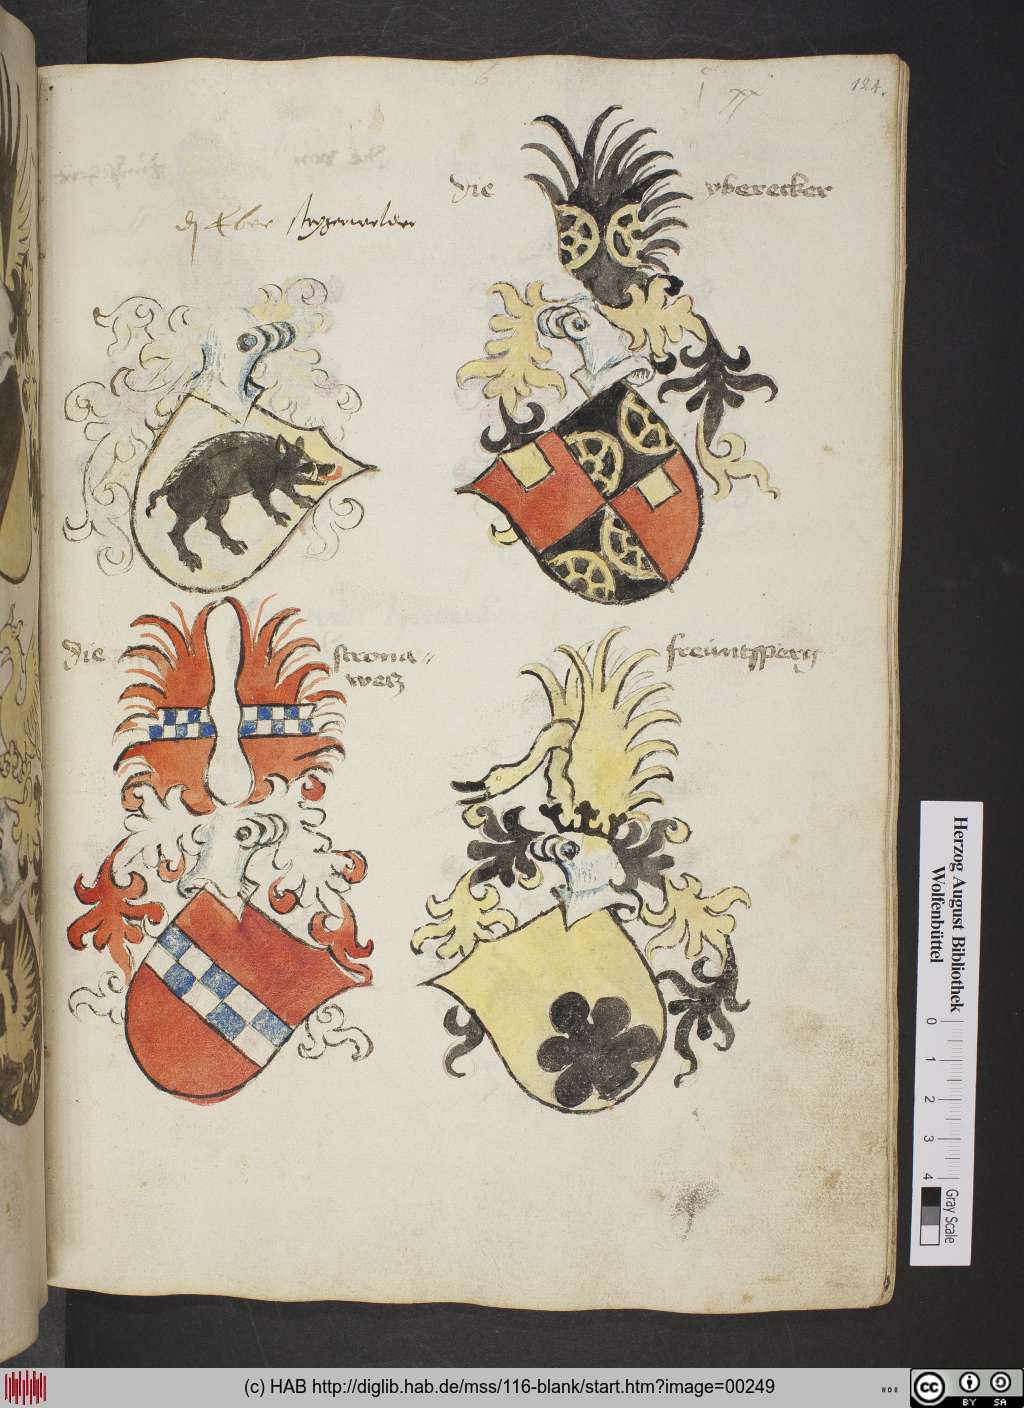 124.
die yberecker
dj Eber
die
freuntsperg
Herzog August Bibliothek
Wolfenbüttel
0 1 2 3 4
Gray Scale
(c) HAB http://diglib.hab.de/mss/116-blank/start.htm?image=00249
cc BY SA